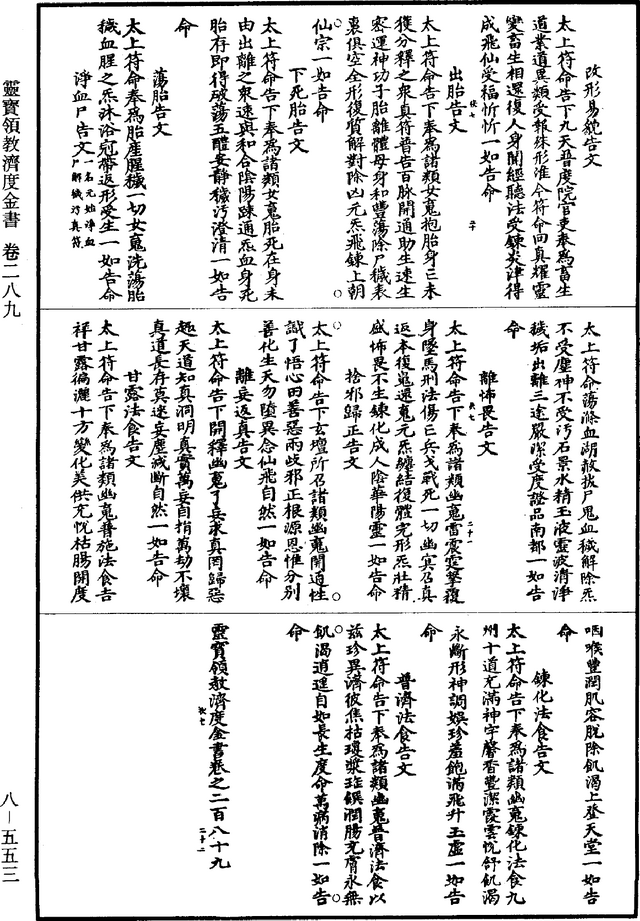 改形易貌告文
太上符命告下九天普度院官吏奉爲畜生
道業道異類受報殊形准今符命回真耀靈
變畜生相還復人身聞經聽法受鍊炎津得
成飛仙受福忻忻一如告命
出胎告文
太上符命告下奉爲諸類女䰟抱胎身亡未
獲分釋之衆真符普告百脉開通助生速生
密運神功子胎離體母身和豐蕩除尸穢表
裏俱空全形復質解對除凶元炁飛鍊上朝
仙宗一如告命
下死胎告文
太上符命告下奉爲諸類女䰟胎死在身未
由出離之衆速與和合陰陽踈通炁血身死
胎存即得破蕩五體安静穢污澄清一如告
命
蕩胎告文
太上符命奉爲胎産腥穢一切女䰟洗蕩胎
穢血腥之炁沐浴冠帶返形受生一如告命
淨血尸告文一名元始淨血尸解穢污真符
太上符命蕩滌血湖救拔尸鬼血穢解除炁
不受塵神不受污石景水精玉液靈波清淨
穢垢出離三途嚴潔受度證品南都一如告
命
離怖畏告文
太上符命告下奉爲諸類幽䰟雷震霆擊覆
身墜馬刑法傷亡兵戈戰死一切幽冥召真
返本復䰟還䰟元炁纏結復體完形炁壯精
盛怖畏不生鍊化成人陰華陽靈一如告命
捨邪歸正告文
太上符命告下玄壇所召諸類幽䰟開通性
識了悟心田善惡兩歧邪正根源思惟分別
善化生天勿墮異念仙飛自然一如告命
離妄返真告文
太上符命告下開釋幽䰟了妄求真罔歸惡
趣天道知真洞明真實萬妄自捐萬劫不壞
真道長存莫迷妄塵滅斷自然一如告命
甘露法食告文
太上符命告下奉爲諸類幽䰟普施法食吉
祥甘露徧灑十方變化美供充悅枯腸開度
咽喉豐潤肌容脫除飢渴上登天堂一如告
命
鍊化法食告文
太上符命告下奉爲諸類幽䰟鍊化法食九
州十道充滿神宇馨香豐潔霞雲悅舒飢渴
永斷形神調娛珍羞飽滿飛升玉虛一如告
命
普濟法食告文
太上符命告下奉爲諸類幽䰟普濟法食以
兹珍異濟彼焦枯瓊漿珍饌潤腸充膚永無
飢渴逍遥自如長生度命萬病消除一如告
命
靈寶領敎濟度金書卷之二百八十九
靈寶領教濟度金書 卷二八九
八－五五三